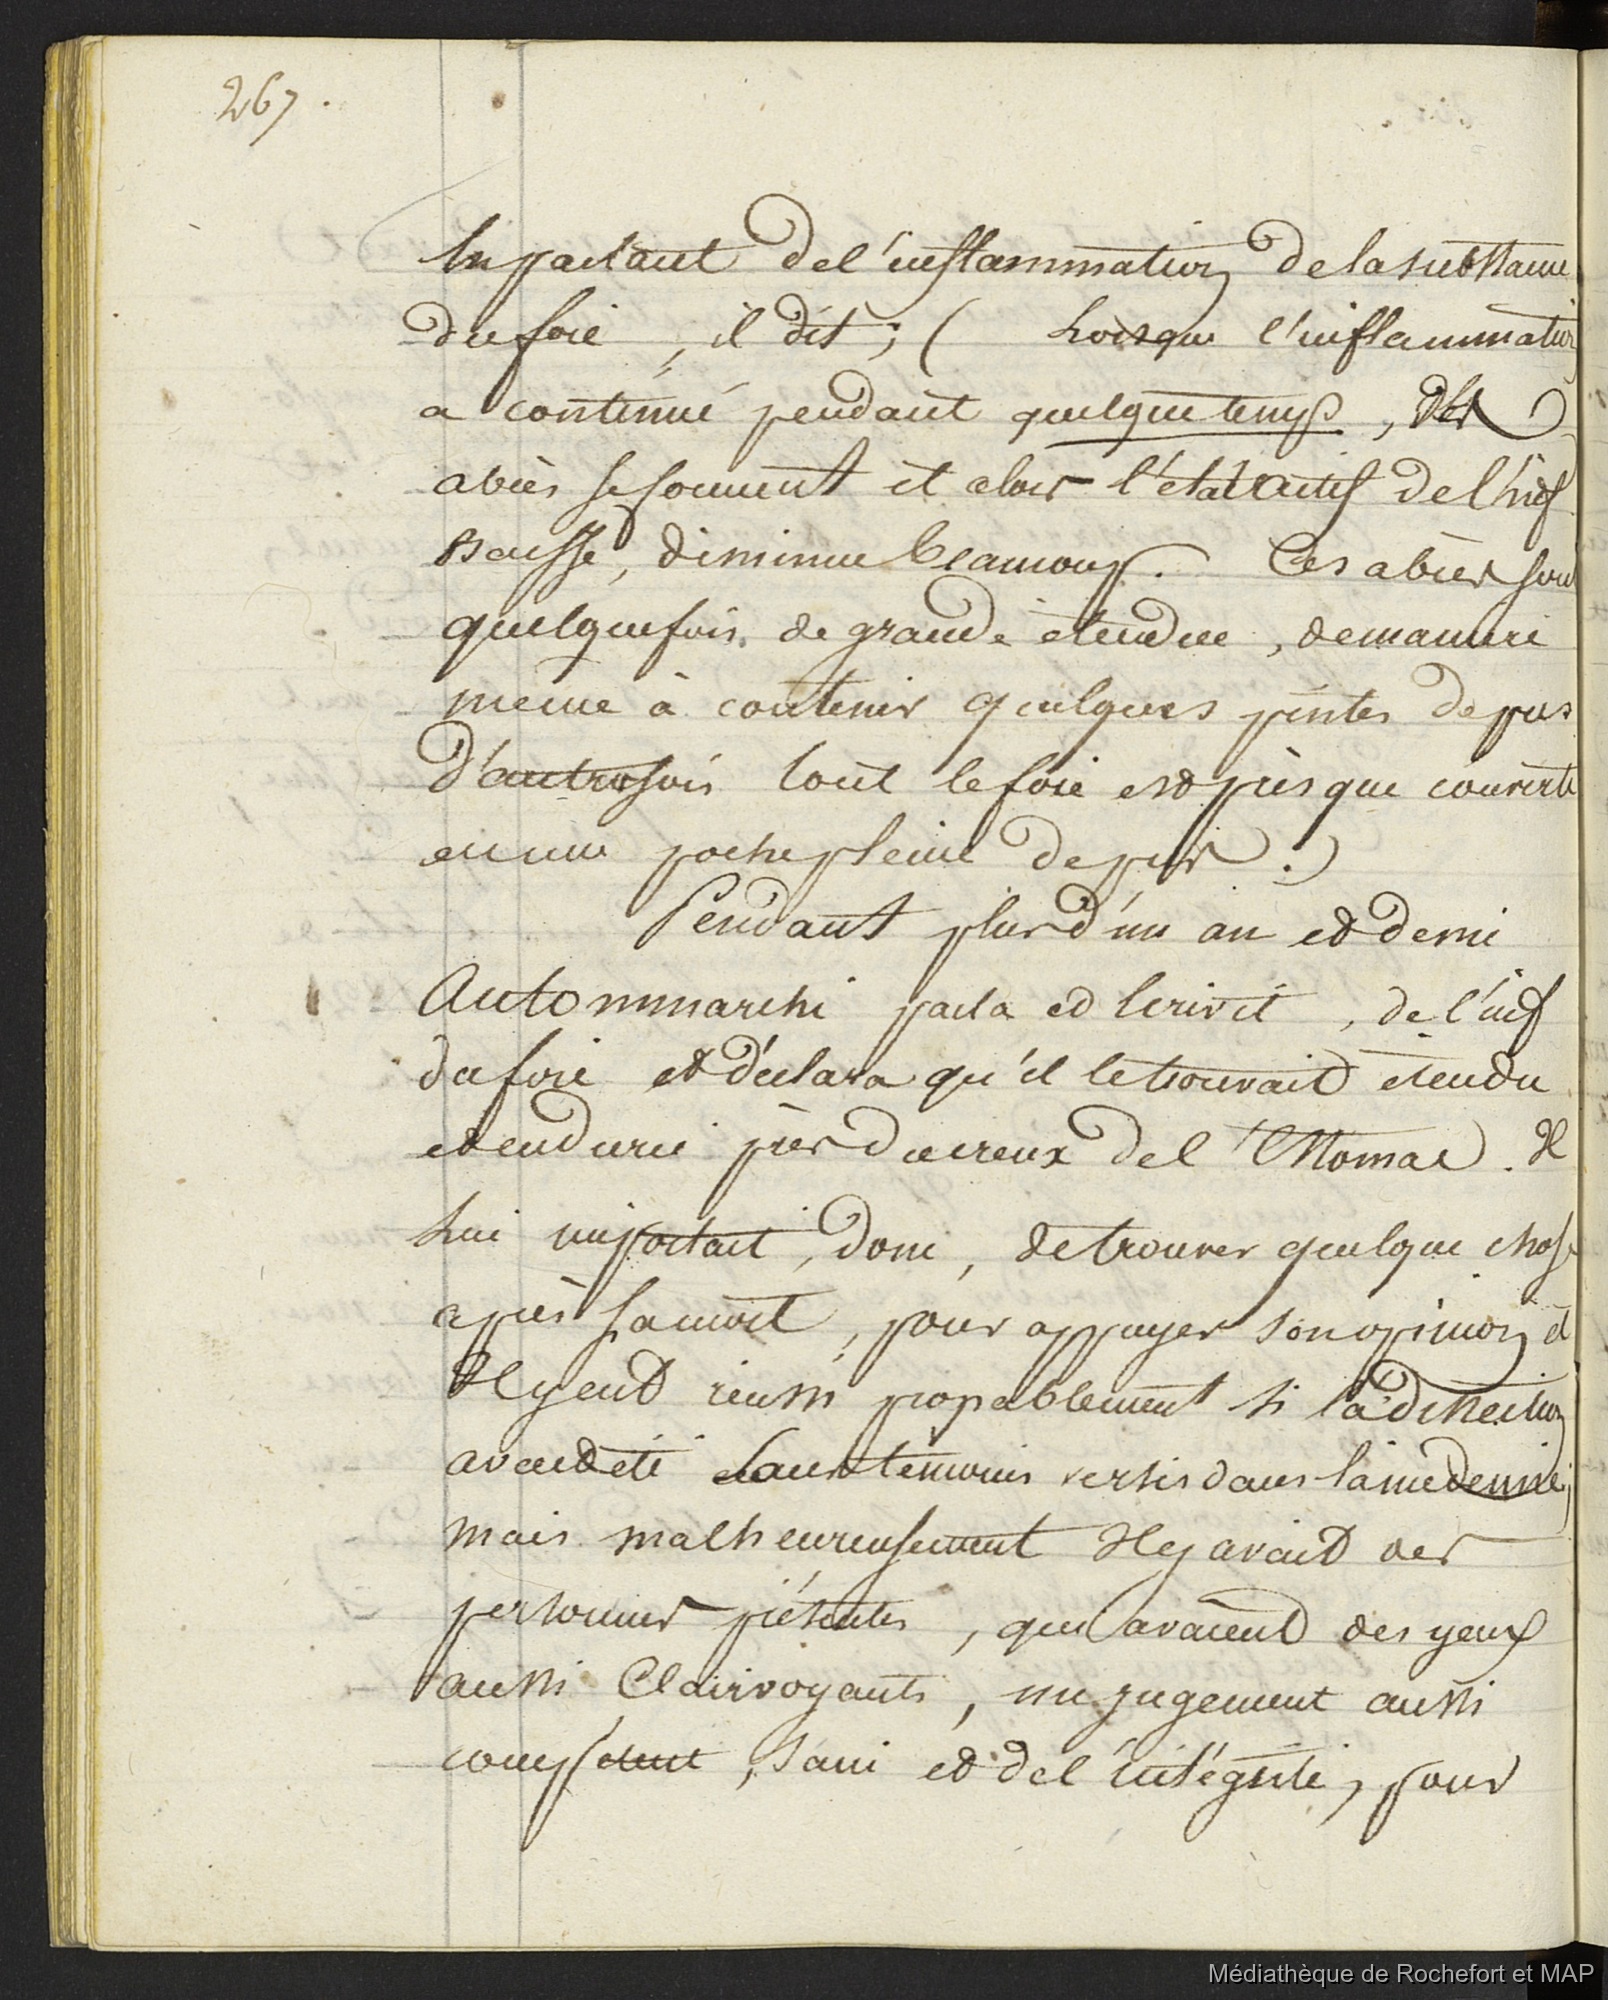 267.
En parlant de l'inflammation de la substance
du foie, il dit; ( Lorsque l'inflammation
a continué pendant quelque temps, des
abcès se forment et alors l'état actif de l'inf
baisse, diminue beaucoup. Ces abcès sont
quelquefois de grande étendue, de maniere
meme à contenir quelques pintes de pus
D'autrefois tout le foie est presque couverti
en une poche pleine de pus.)
Pendant plus d'un an et demi
Autommarchi parla et Ecrivit, de l'inf
du foie et déclara qu'il le trouvait étendu
et endurci près du creux de l'Estomac. Il
Lui importait, donc, de trouver quelque chose
après sa mort, pour appuyer son opinion et
Il y eut réussi propablement si la dissection
avait été sans témoins versés dans la médecine;
mais malheureusement Il y avait des
personnes présentes, qui avaient des yeux
aussi Clairvoyants, un jugement aussi
compétent, sain et de l'intégrité, pour
Médiathèque de Rochefort et MAP